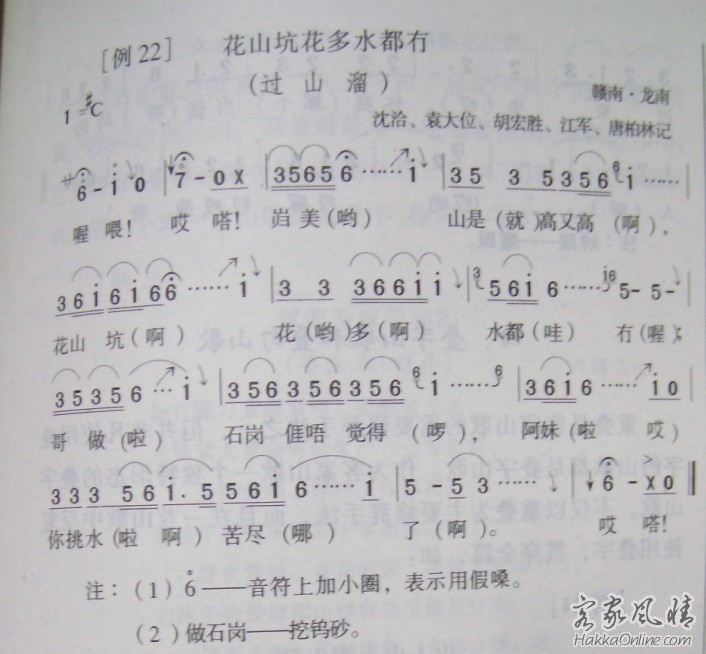 [例22] 花山坑花多水都冇
(过山溜)
赣南·龙南
1=♯C
沈洽、袁大位、胡宏胜、江军、唐柏林记
6 - i 0 | 7 - 0 X | 35656 …… i | 35 3 5356 i ……
喔 喂! 哎 嗒! 岿 美(哟) 山是(就)高又高(啊),
36i 6i66 …… i | 3 3 366ii | 56i 6 …… 5- 5-
花山 坑(啊) 花(哟)多(啊) 水都(哇) 冇(喔);
35356 … i | 356 356 356 i …… 6 | 36i6 … i0
哥 做(啦) 石岗 偓唔 觉得 (啰), 阿妹(啦 哎)
333 56i. 5 56i 6 …… i | 5 -53 …… | 6 -X0
你挑水(啦 啊) 苦尽 (哪) 了(啊)。 哎 嗒!
注:(1)6——音符上加小圈,表示用假嗓。
(2)做石岗——挖钨砂。
客家风情
HakkaOnline.com